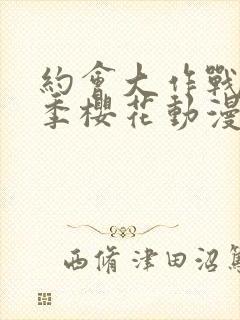 約會大作戰
季櫻花動漫
西脩津田沼篤